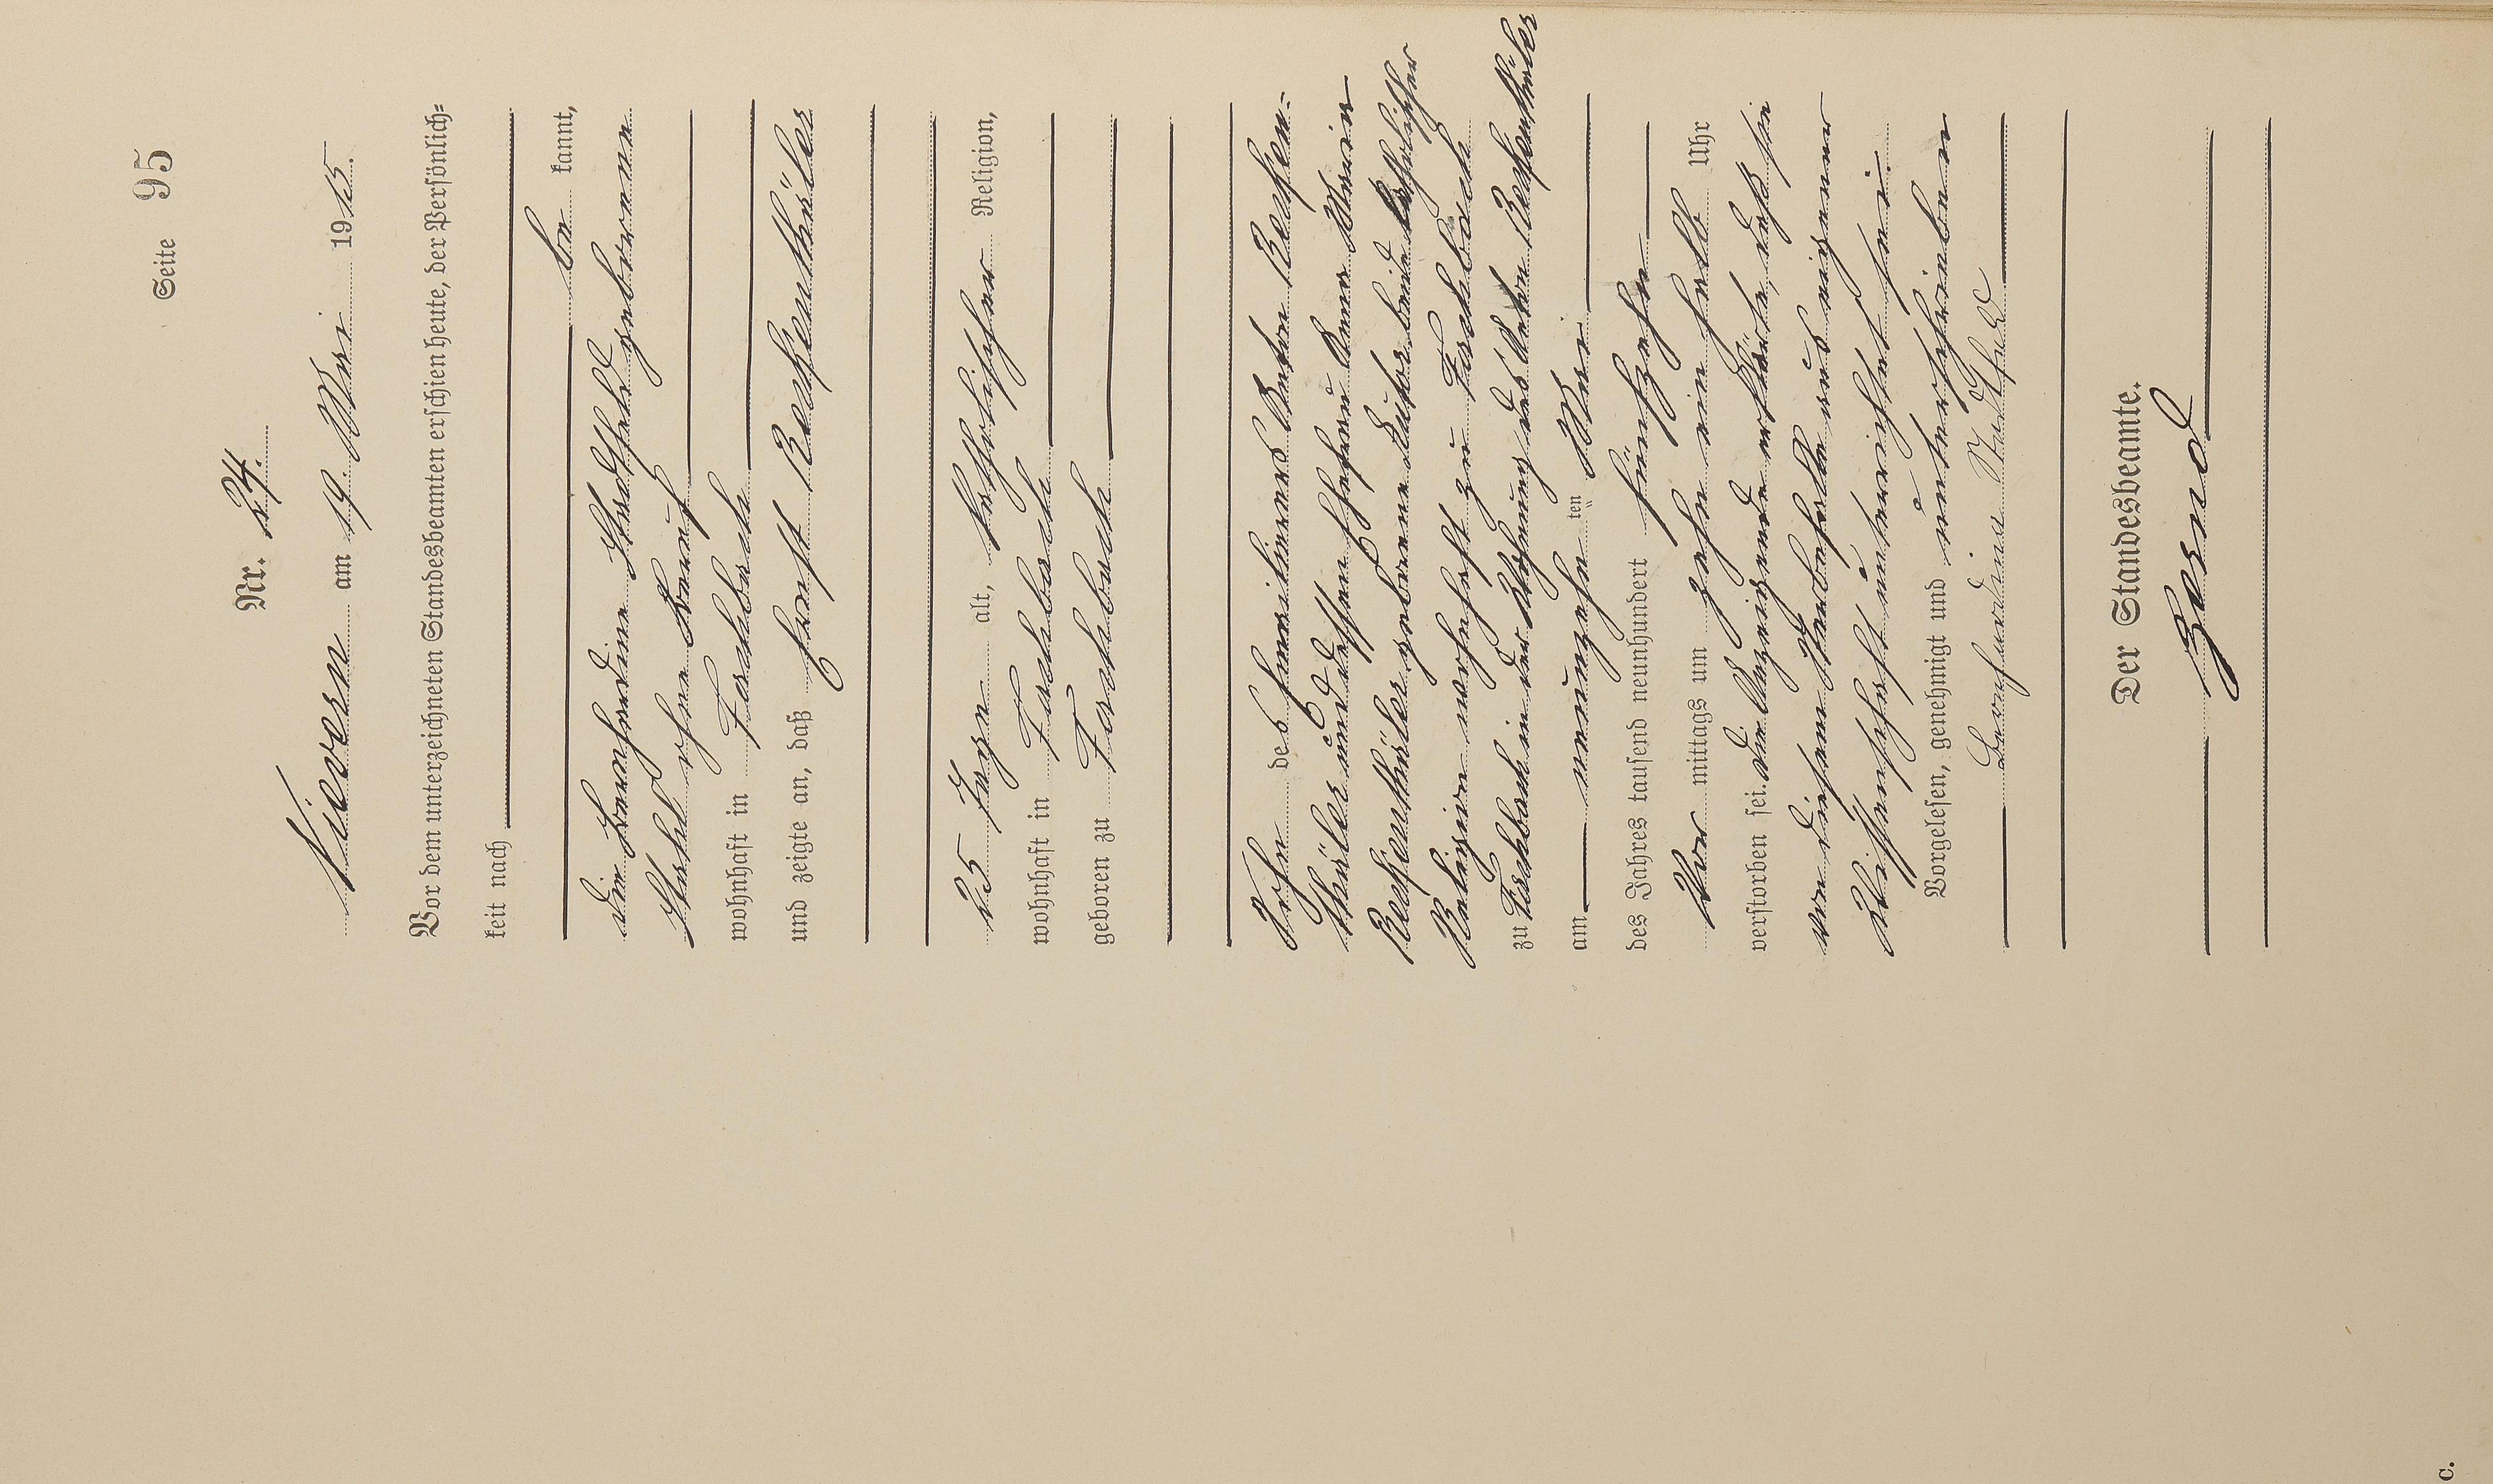 Seite 95
Nr. 24.
Nievern am 19. Mai 1915.
Vor dem unterzeichneten Standesbeamten erschien heute, der Persönlich=
keit nach
be kannt,
die Bernhardine Stadtfeld geborene
Stahl ohne Beruf
wohnhaft in Fachbach
und zeigte an, daß Ernst Reckenthäler
25 Tage alt, katholischer Religion,
wohnhaft in Fachbach
geboren zu Fachbach
Sohn des Anton Recken=
thäler und dessen Ehefrau Anna Maria
Reckenthäler geborene beide katholischer
Religion wohnhaft zu Fachbach
zu Fachbach in der Wohnung des Vaters Reckenthäler
am neunzehn ten Mai
des Jahres tausend neunhundert fünfzehn
Vor mittags um zehn ein halb Uhr
verstorben sei. Die Anzeigende erklärte, daß sie
von diesem Sterbefalle aus eigener
Wissenschaft unterrichtet sei.
Vorgelesen, genehmigt und unterschrieben
Bernhardine Stadtfeld
Der Standesbeamte.
C.